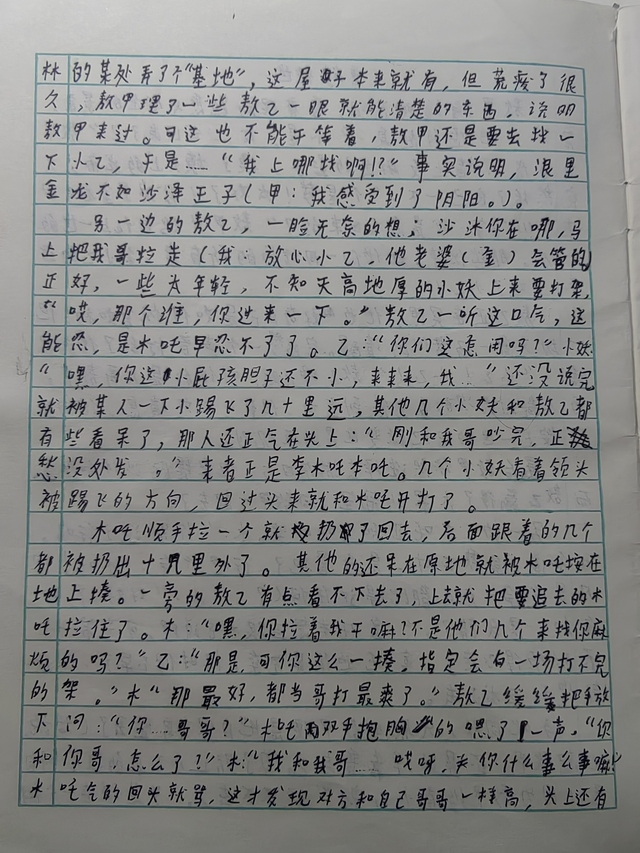 林的某处弄了个“基地”，这屋子本来就有，但荒废了很
久，敖甲理了一些敖乙一眼就能清楚的东西，说明
敖甲来过。可这也不能干等着，敖甲还是要去找一
下小乙，于是……“我上哪找啊!?”事实说明，浪里
金龙不如沙泽王子(甲：我感受到了阴阳。)。
另一边的敖乙，一脸无奈的想；沙沐你在哪，马
上把我哥拉走(我：放心小乙，他老婆(金)会管的
正好，一些太年轻，不知天高地厚的小妖上来要打架，
“哎，那个谁，你过来一下。”敖乙一听这口气，这
能忍，是木吒早忍不了了。乙：“你们这忘闲吗?”小妖
“嘿，你这小屁孩胆子还不小，来来来，我…”还没说完
就被某人一下小踢飞了几十里远，其他几个小妖和敖乙都
有些看呆了，那人还正气在头上：“刚和我哥吵完，正
愁没处发。”来者正是李木吒本吒。几个小妖看着领头
被踢飞的方向，回过头来就和木吒开打了。
木吒顺手拉一个就扔了回去，后面跟着的几个
都被扔出十几里外了。其他的还呆在原地就被木吒按在
地上揍。一旁的敖乙有点看不下去了，上去就把要追去的木
吒拉住了。木：“嘿，你拉着我干嘛?不是他们几个来找你麻
烦的吗?”乙：“那是，可你这么一揍，指定会有一场打不完
的架。”木“那最好，都当哥打最爽了。”敖乙缓缓把手放
下问：“你……哥哥?”木吒两双手抱胸的嗯了一声，“你
和你哥，怎么了?”木：“我和我哥……哎呀，关你什么事么事嘛”
木吒气的回头就骂，这才发现对方和自己哥哥一样高，头上还有